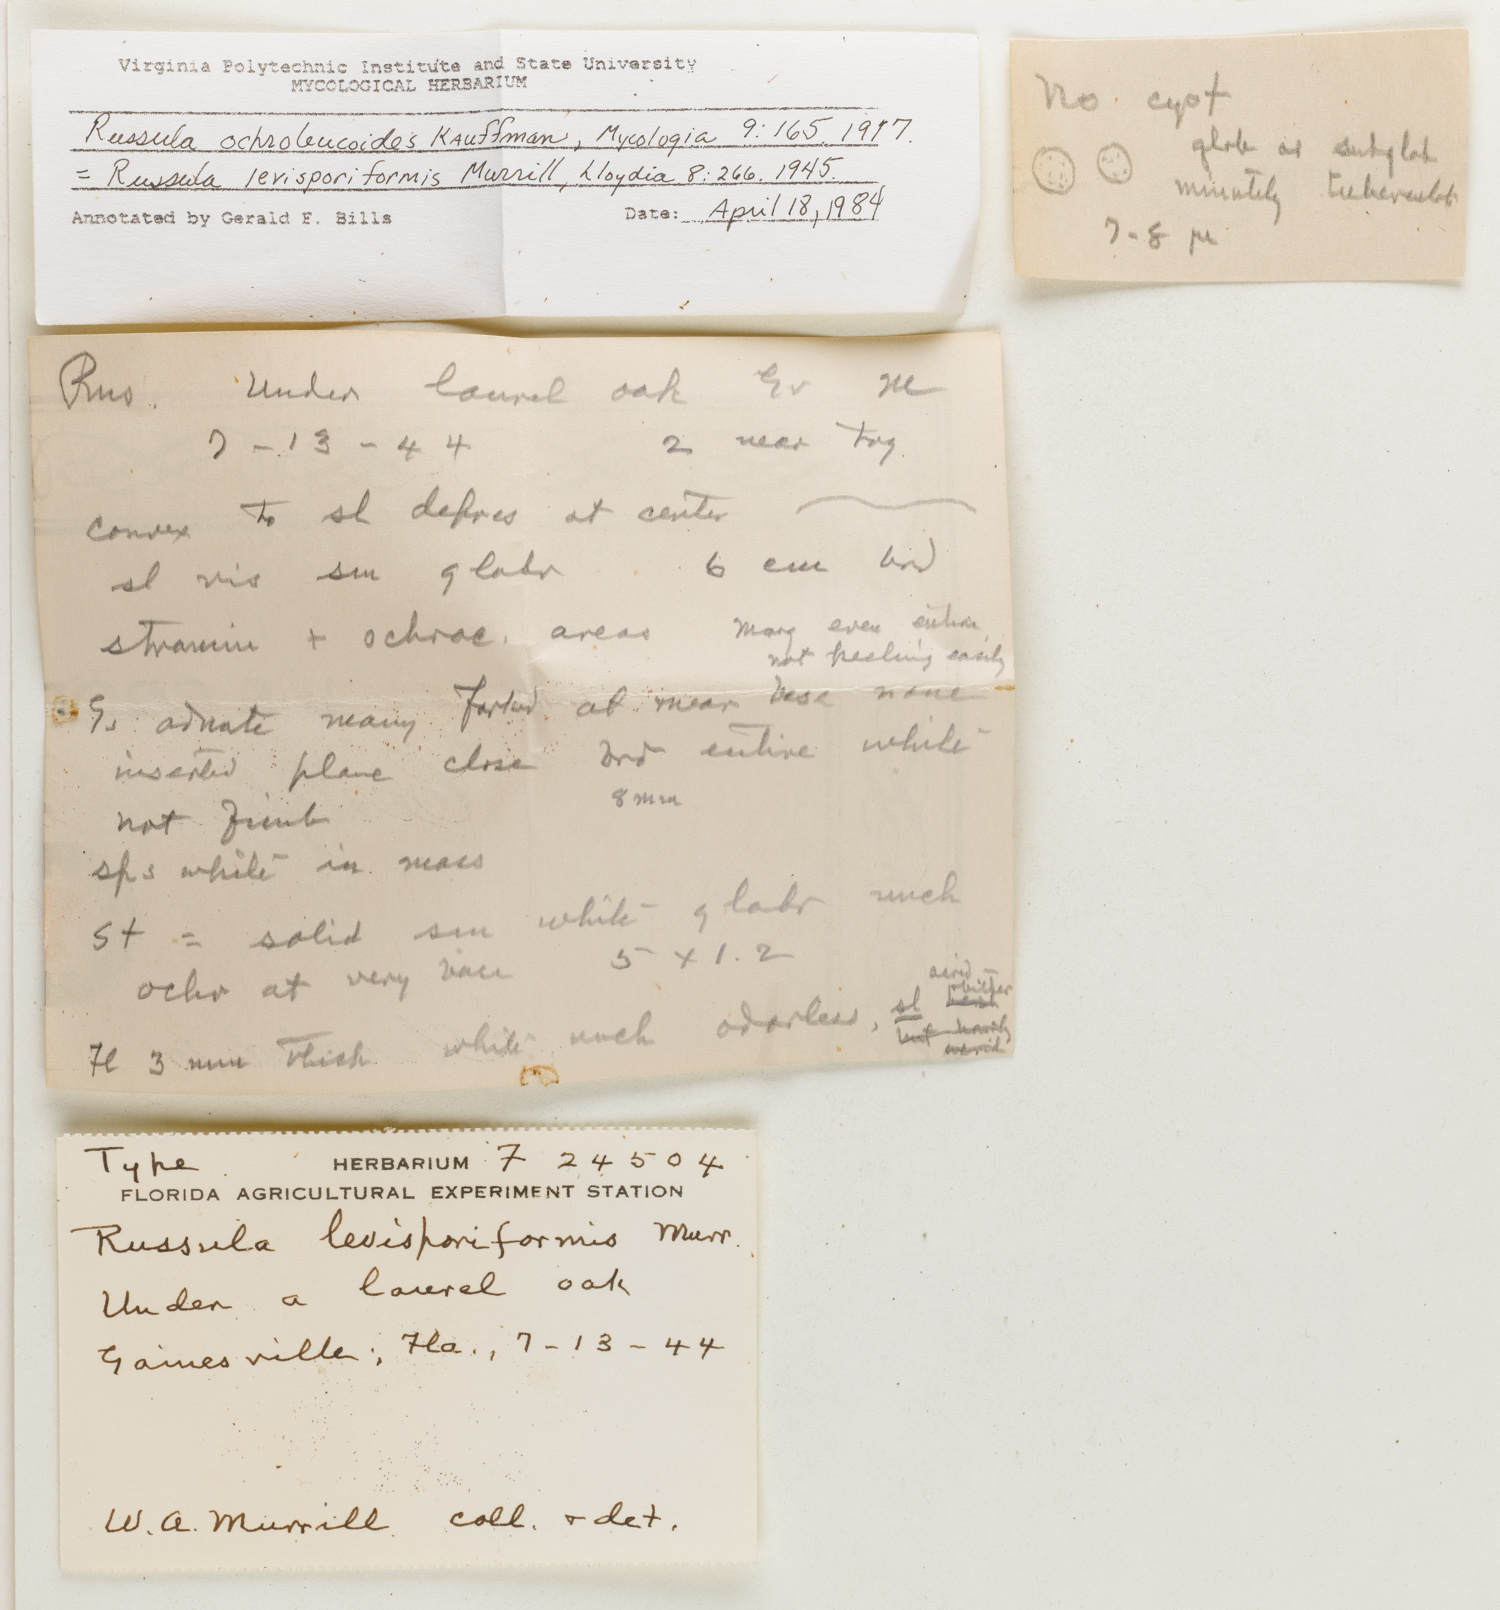 Virginia Polytechnic Institute and State University
MYCOLOGICAL HERBARIUM
Russula ochroleucoides Kauffman, Mycologia 9:165. 1917.
= Russula levisporiformis Murrill, Lloydia 8:266. 1945.
Annotated by Gerald F. Bills Date: April 18, 1984
No cyst
glob or subglob
minutely tuberculate
7-8 µ
Rus. Under laurel oak Gv M
7-13-44 2 near tog.
convex to sl depres at center
sl vis sm glabr 6 cm brd
stramin + ochrac. areas Marg even entire
not peeling easily
Gs adnate many forked at near base none
inserted plane close brd entire white
8 mm
not fimb
sps white in mass
St = solid sm white glabr unch
ochr at very base 5 x 1.2
Fl 3 mm thick white unch odorless, sl
bitter
acrid
Type HERBARIUM F 24504
FLORIDA AGRICULTURAL EXPERIMENT STATION
Russula levisporiformis Murr.
Under a laurel oak
Gainesville, Fla., 7-13-44
W.A. Murrill coll. + det.